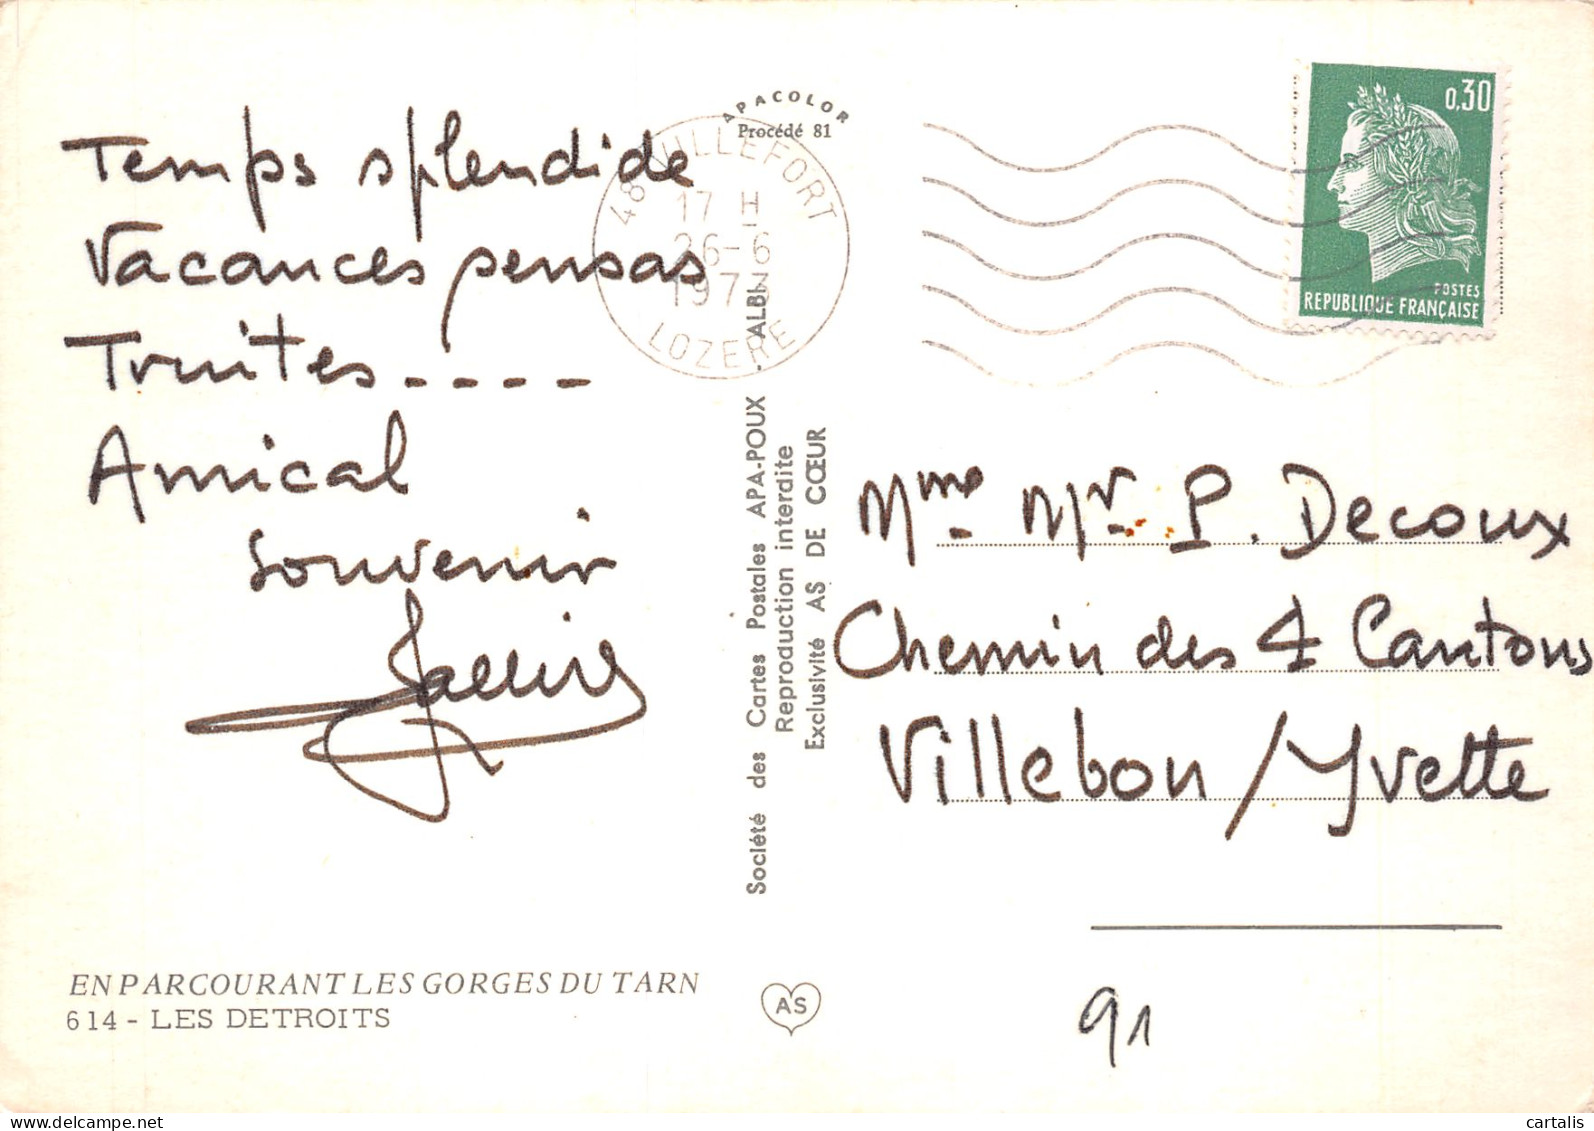 Temps splendide
Vacances pensas
Truites....
Amical
souvenir
EN PARCOURANT LES GORGES DU TARN
614 - LES DETROITS
APACOLOR
Procédé 81
48 VILLEFORT
17 H
26-6
LOZERE
Société des Cartes Postales APA-POUX . ALBI
Reproduction interdite
Exclusivité AS DE CŒUR
AS
0,30
POSTES
REPUBLIQUE FRANÇAISE
Mme. Mr. P. Decoux
Chemin des 4 Cantons
Villebon / Yvette
91
cartalis
delcampe.net